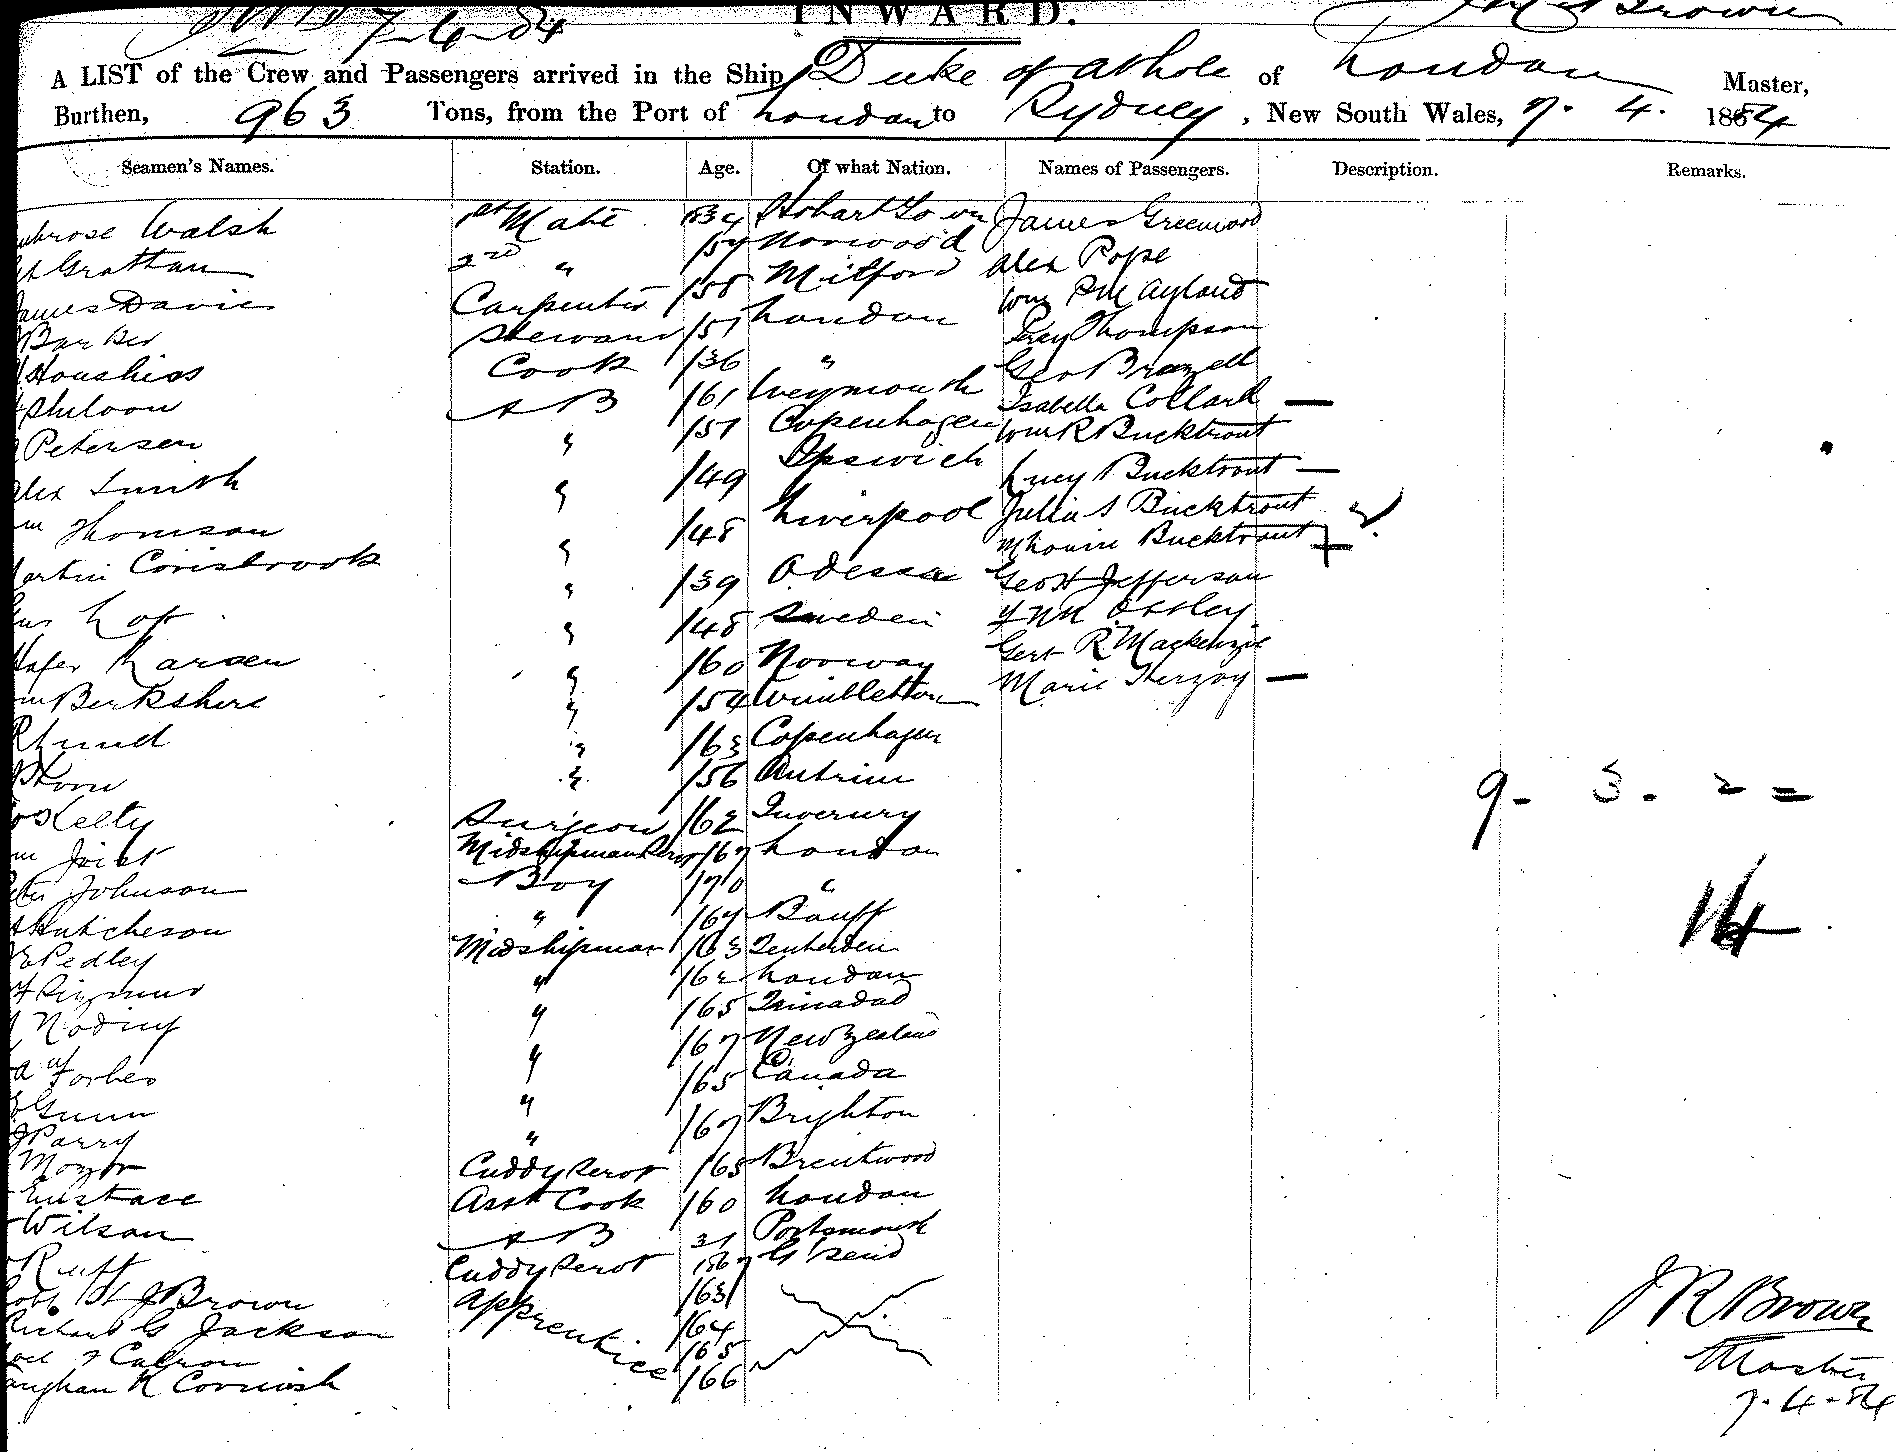 7-6-84
INWARD.
J R Brown
A LIST of the Crew and Passengers arrived in the Ship Duke of Athole of London Master,
Burthen, 963 Tons, from the Port of London to Sydney, New South Wales, 7. 4. 1884
Seamen's Names. Station. Age. Of what Nation. Names of Passengers. Description. Remarks.
Walsh 1st Mate Hobart Town James Greenwood
Grattan 2nd " /57 Norwood Alex Pope
James Davies Carpenter /58 Milford Wm
Barker Steward /57 London Percy Thompson
Hoskins Cook /36 " Geo Brazell
A B /61 Weymouth Isabella Collard —
Petersen " /57 Copenhagen Wm R Bucktrout
Alex Smith " /49 Ipswich Lucy Bucktrout —
Thomson " /48 Liverpool Julia S Bucktrout
Martin Corisbrook " /39 Odessa Bucktrout
" /48 Sweden Geo H Jefferson
Larsen " /60 Norway Ossley
Berkshire " /54 Wimbleton Gert R Mackenzie
Lund " /63 Copenhagen Marie Herzog —
Thorn " /56 Antrim
Kelty Surgeon /62 Inverury
Joist Midshipman /67 London
Johnson Boy /70 "
Hutcheson " /67 Banff
Pedley Midshipman /63 Tenterden
" /62 London
Noding " /65 Trinadad
Forbes " /67 New Zealand
Gunn " /65 Canada
Parry " /67 Brighton
Cuddy Servt /65 Brentwood
Eustace Asst Cook /60 London
Wilson A B 31 Portsmouth
Ruff Cuddy Servt G'send
Robt St J Brown Apprentice /63
Richard G Jackson /64
/65
Vaughan K Cornish /66
9 - 3 . 2 =
14
J R Brown
Master
7-4-84